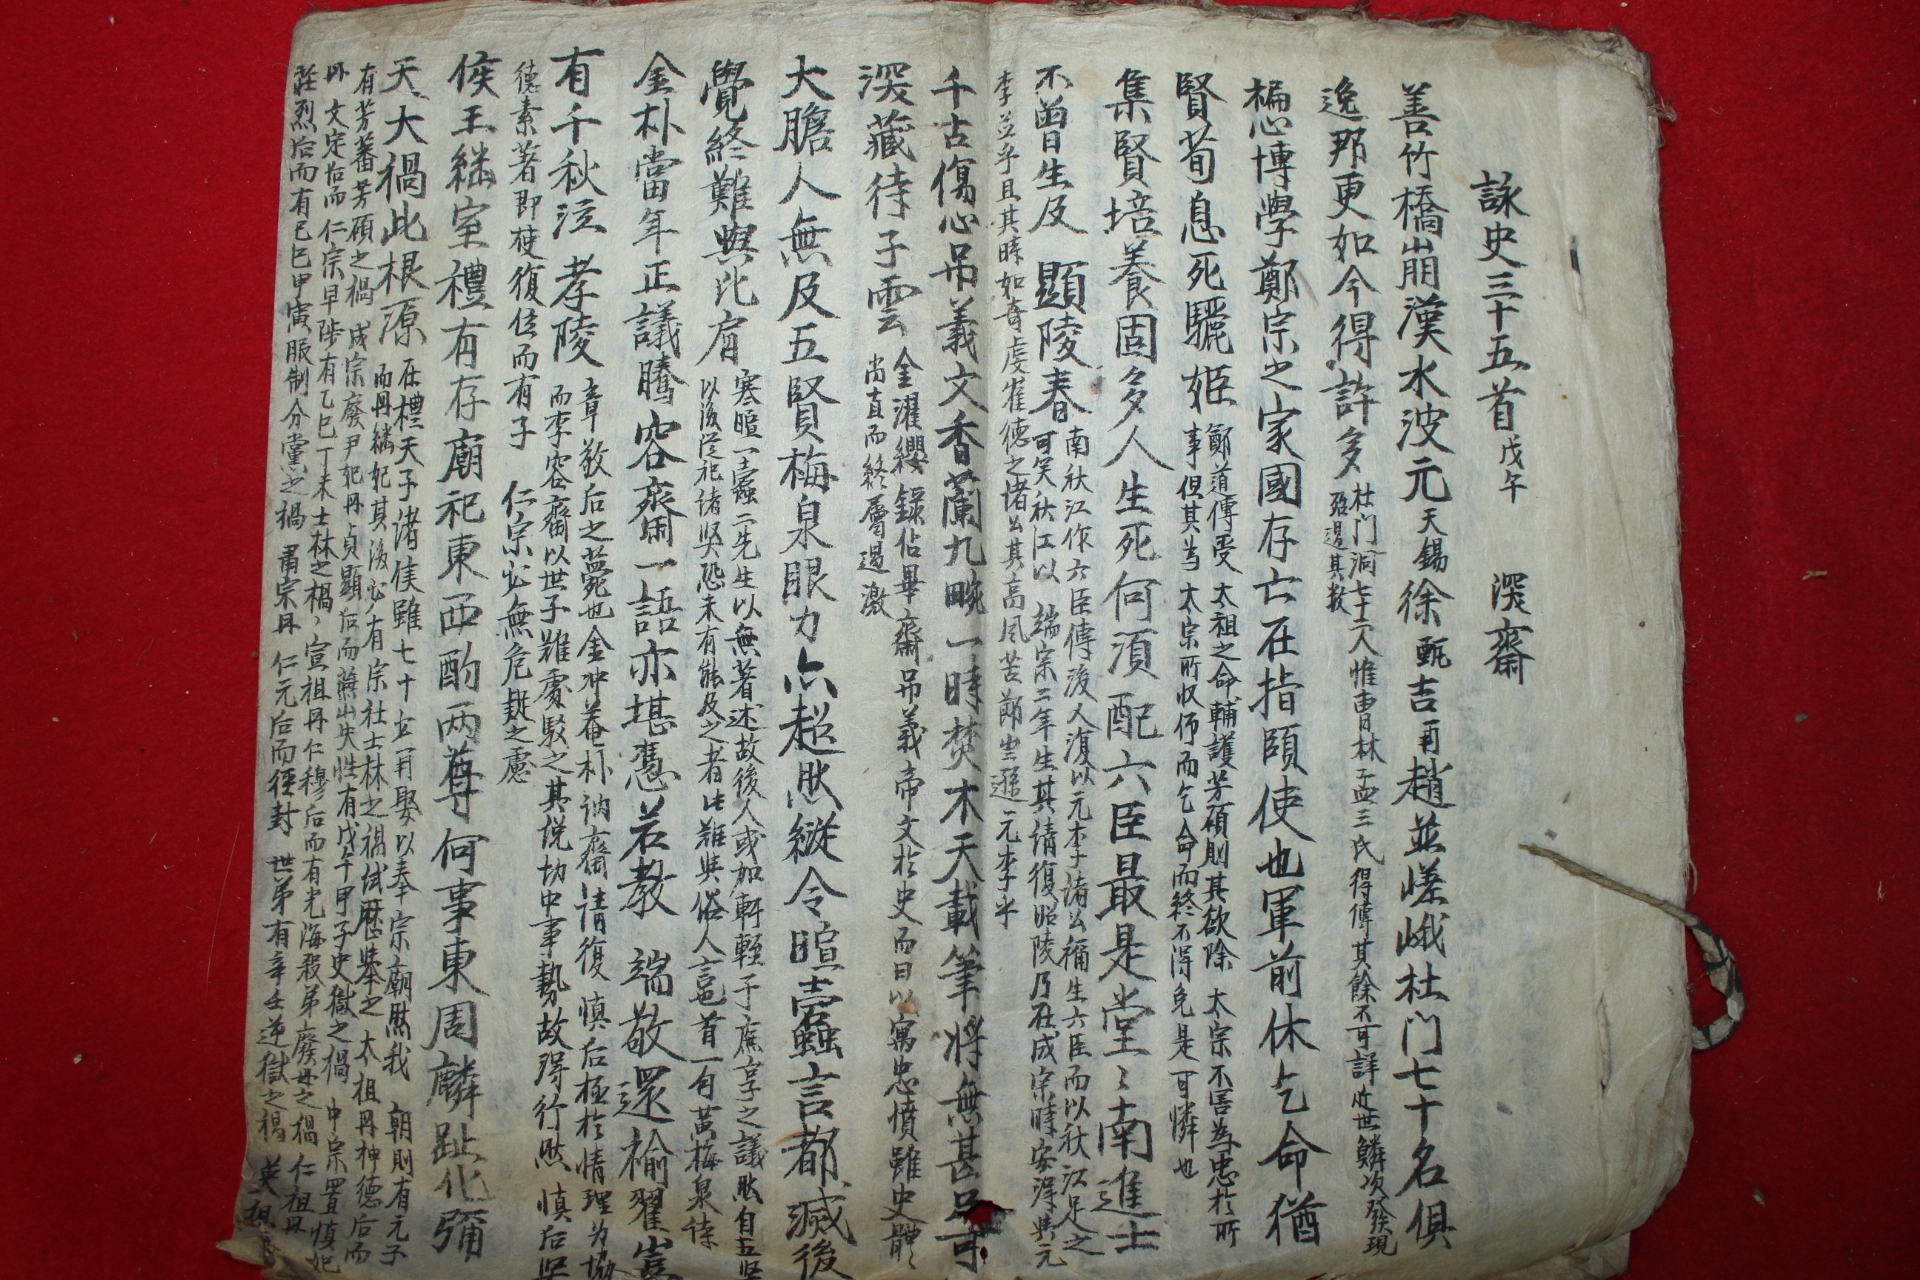 詠史三十五首 戊午 深齋
善竹橋崩漢水波元天錫徐甄吉再趙並嵯峨杜門七十名俱
逸那更如今得許多
杜門洞七十二人惟曺林孟三氏得傳其餘不可詳近世鱗次發現
強過其數
褊心博學鄭宗之家國存亡在指頤使也軍前休乞命猶
賢荀息死驪姬
鄭道傳受 太祖之命輔護芳碩則其欲除 太宗不害為忠於所
事但其当 太宗所收何而乞命而終不得免是可憐也
集賢培養固多人生死何須配六臣最是堂〻南進士
不曾生及 顯陵春
南秋江作六臣傳後人復以元李諸公稱生六臣而以秋江足之
可笑秋江以 端宗二年生其請復昭陵乃在成宗時安得與元
李並乎且其時如奇虔崔德之諸公其高風苦節豈遜元李乎
千古傷心吊義文香蘭九畹一時焚木天載筆將無甚
深藏待子雲
金濯纓錄佔畢齋吊義帝文於史而曰以寓忠憤雖史體
尚直而終層過激
大膽人無及五賢梅泉眼力亦超然縱令暄蠹言都滅後
覺終難與比肩
寒暄一蠹二先生以無著述故後人或加軒輊于廡享之議然自五賢
以後從祀諸吳恐未有能及之者此難與俗人言首一句黃梅泉詩
金朴當年正議騰容齋一語亦堪憑若教 端敬還褕翟豈
有千秋泣孝陵
章敬后之薨也金冲菴朴訥齋請復 愼后極於情理为協
而李容齋以世子難處駁之其說切中事勢故得行然 愼后
德素著即使復位而有子 仁宗必無危疑之慮
侯王継室禮有存廟祀東西酌两尊何事東周麟趾化彌
天大禍此根源
在禮天子諸侯雖七十必再娶以奉宗廟然我 朝則有元子
而冉継妃其後必有宗社士林之禍試歷擧之 太祖冉神德后而
有芳蕃芳碩之禍 成宗廢尹妃冉貞顯后而 有戊午甲子史獄之禍 中宗置愼妃
冉 文定后而仁宗早陟有乙巳丁未士林之禍 宣祖冉仁穆后而有光海殺弟廢母之禍 仁祖冉
莊烈后而有己巳甲寅服制分黨之禍 肅宗冉 仁元后而徑封 世弟有辛壬逆獄之禍 英祖冉